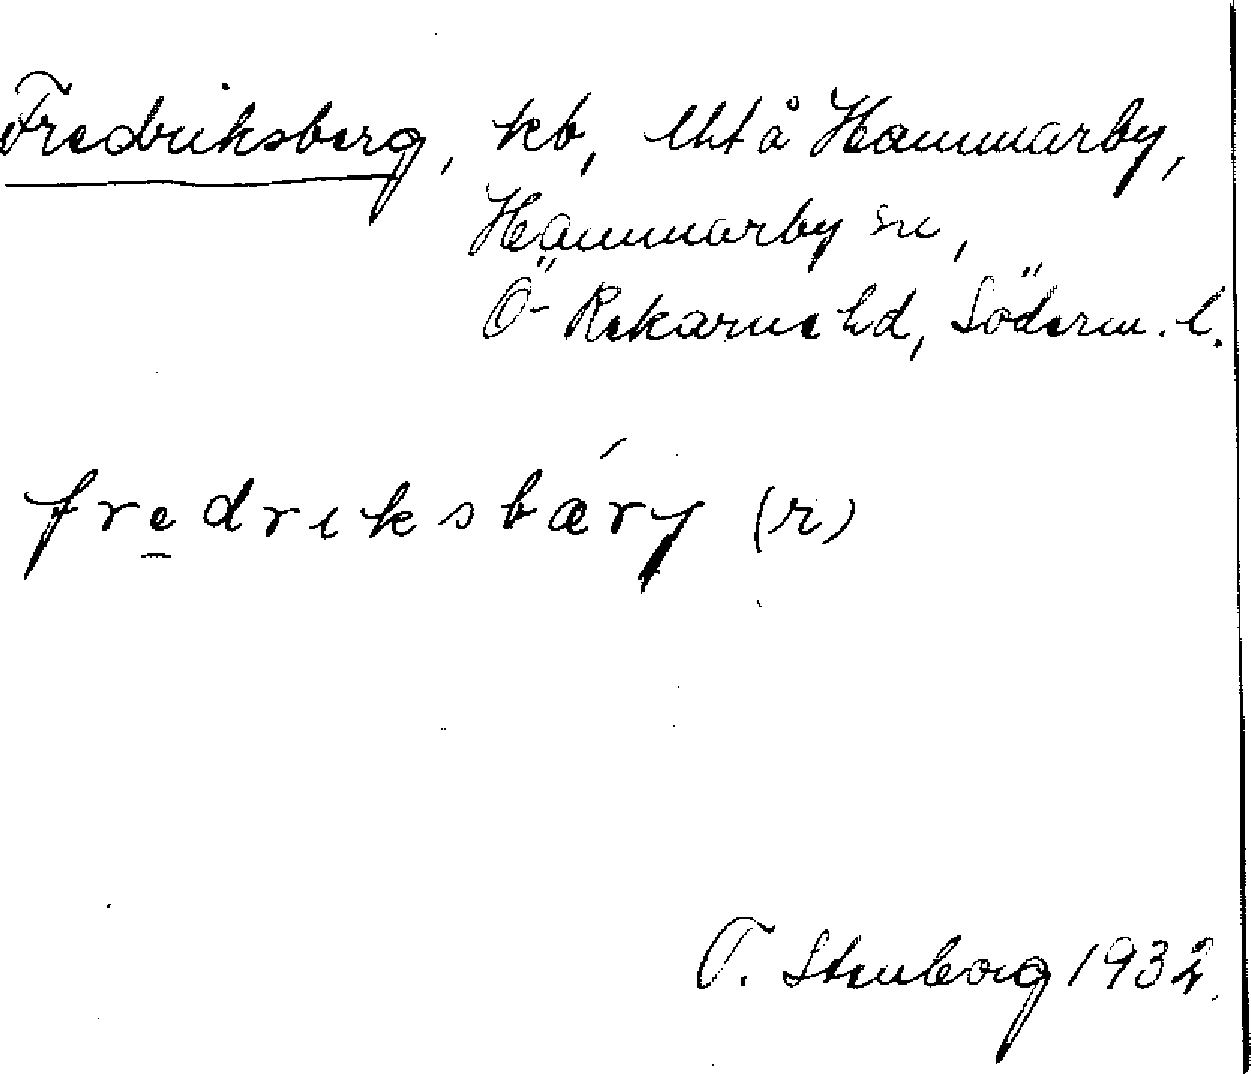 Fredriksberg, kb, lht å Hammarby,
Hammarby sn,
Ö-Rekarne hd, Söderm. l.
fredriksbæry (r)
T. Stenborg 1932.